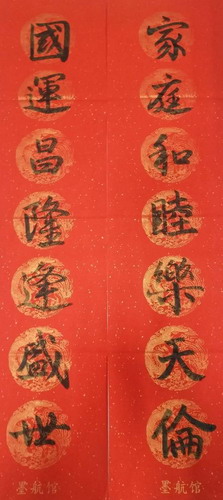 家庭和睦樂天倫
國運昌隆逢盛世
墨航馆
墨航馆